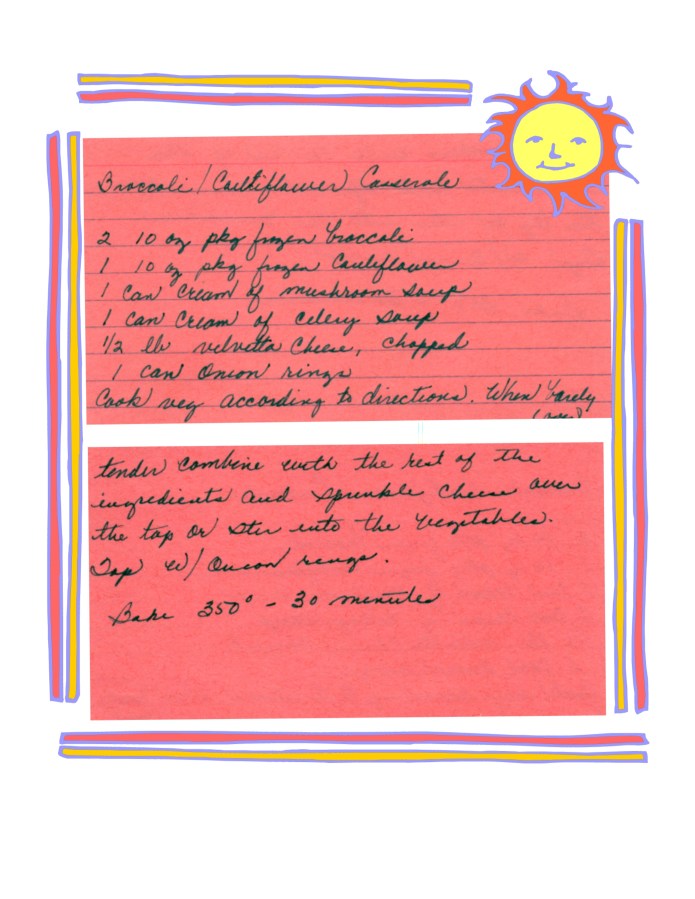 Broccoli/Cauliflower Casserole
2 10 oz pkg frozen broccoli
1 10 oz pkg frozen Cauliflower
1 can cream of mushroom soup
1 can cream of celery soup
1/2 lb velvetta cheese, chopped
1 can onion rings
Cook veg according to directions. When barely
(over)
tender combine with the rest of the
ingredients and sprinkle cheese over
the top or stir into the vegetables.
Top w/ Onion rings.
Bake 350° - 30 minutes